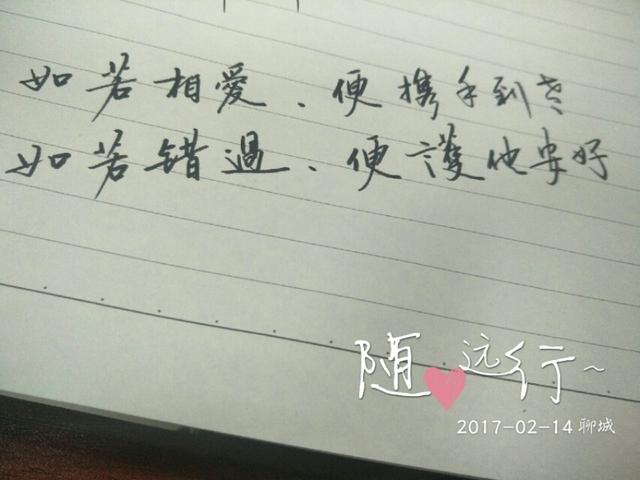 如若相愛、便携手到老
如若错過、便護他安好
随 远行~
2017-02-14 聊城